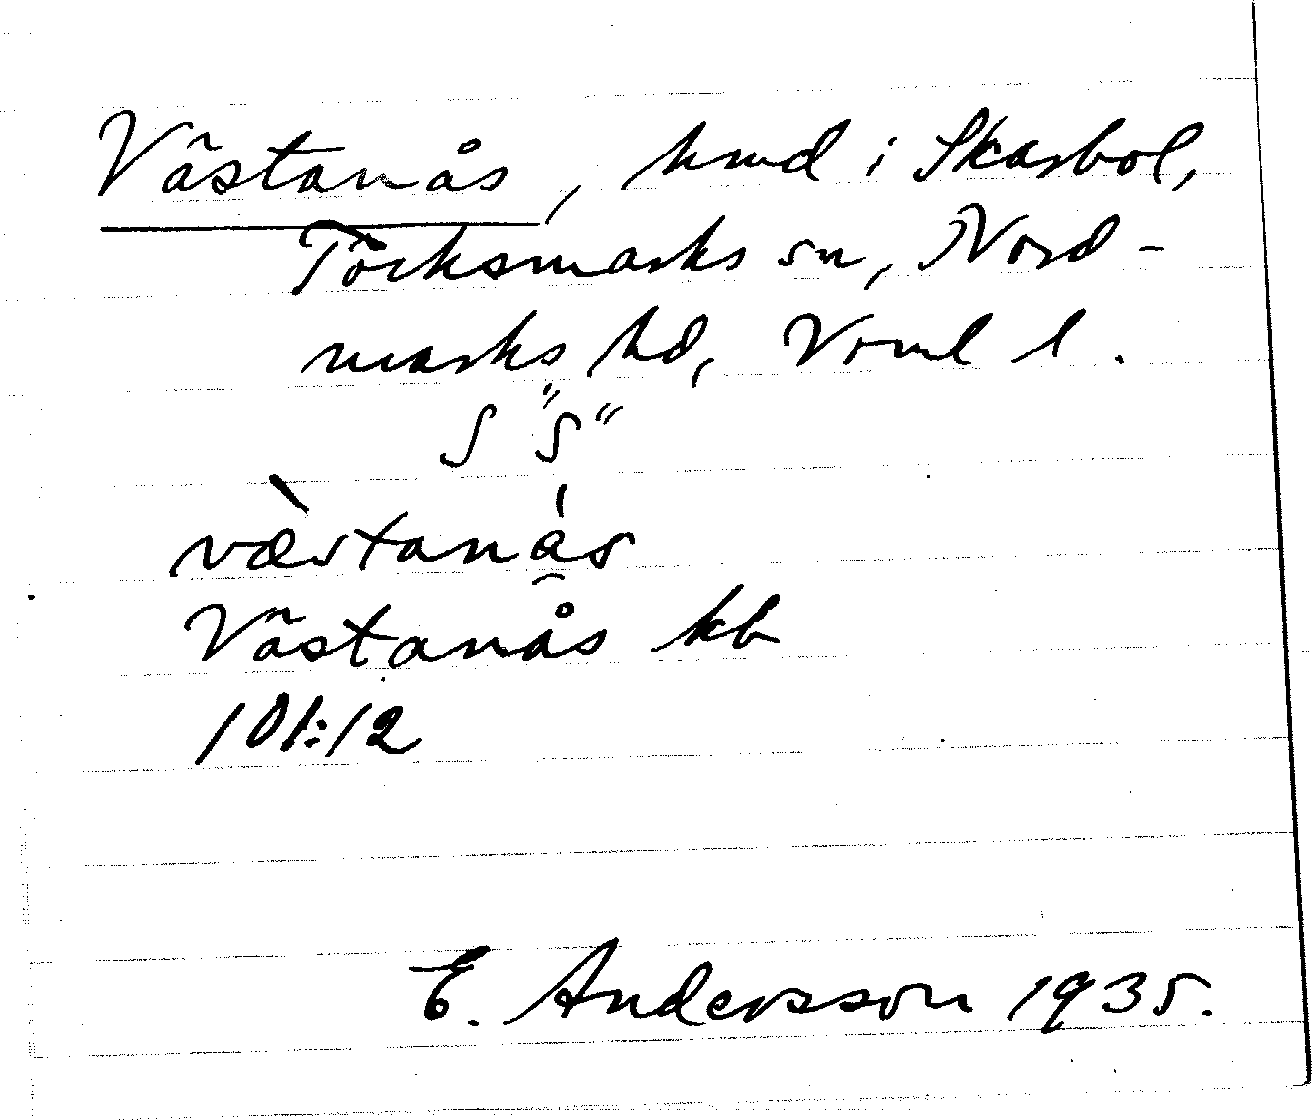 Västanås, hmd i Skarbol,
Töcksmarks sn, Nord-
marks hd, Vrml l.
5 "5"
væ̀staná̯s
Västanås kb
101:12
E. Andersson 1935.